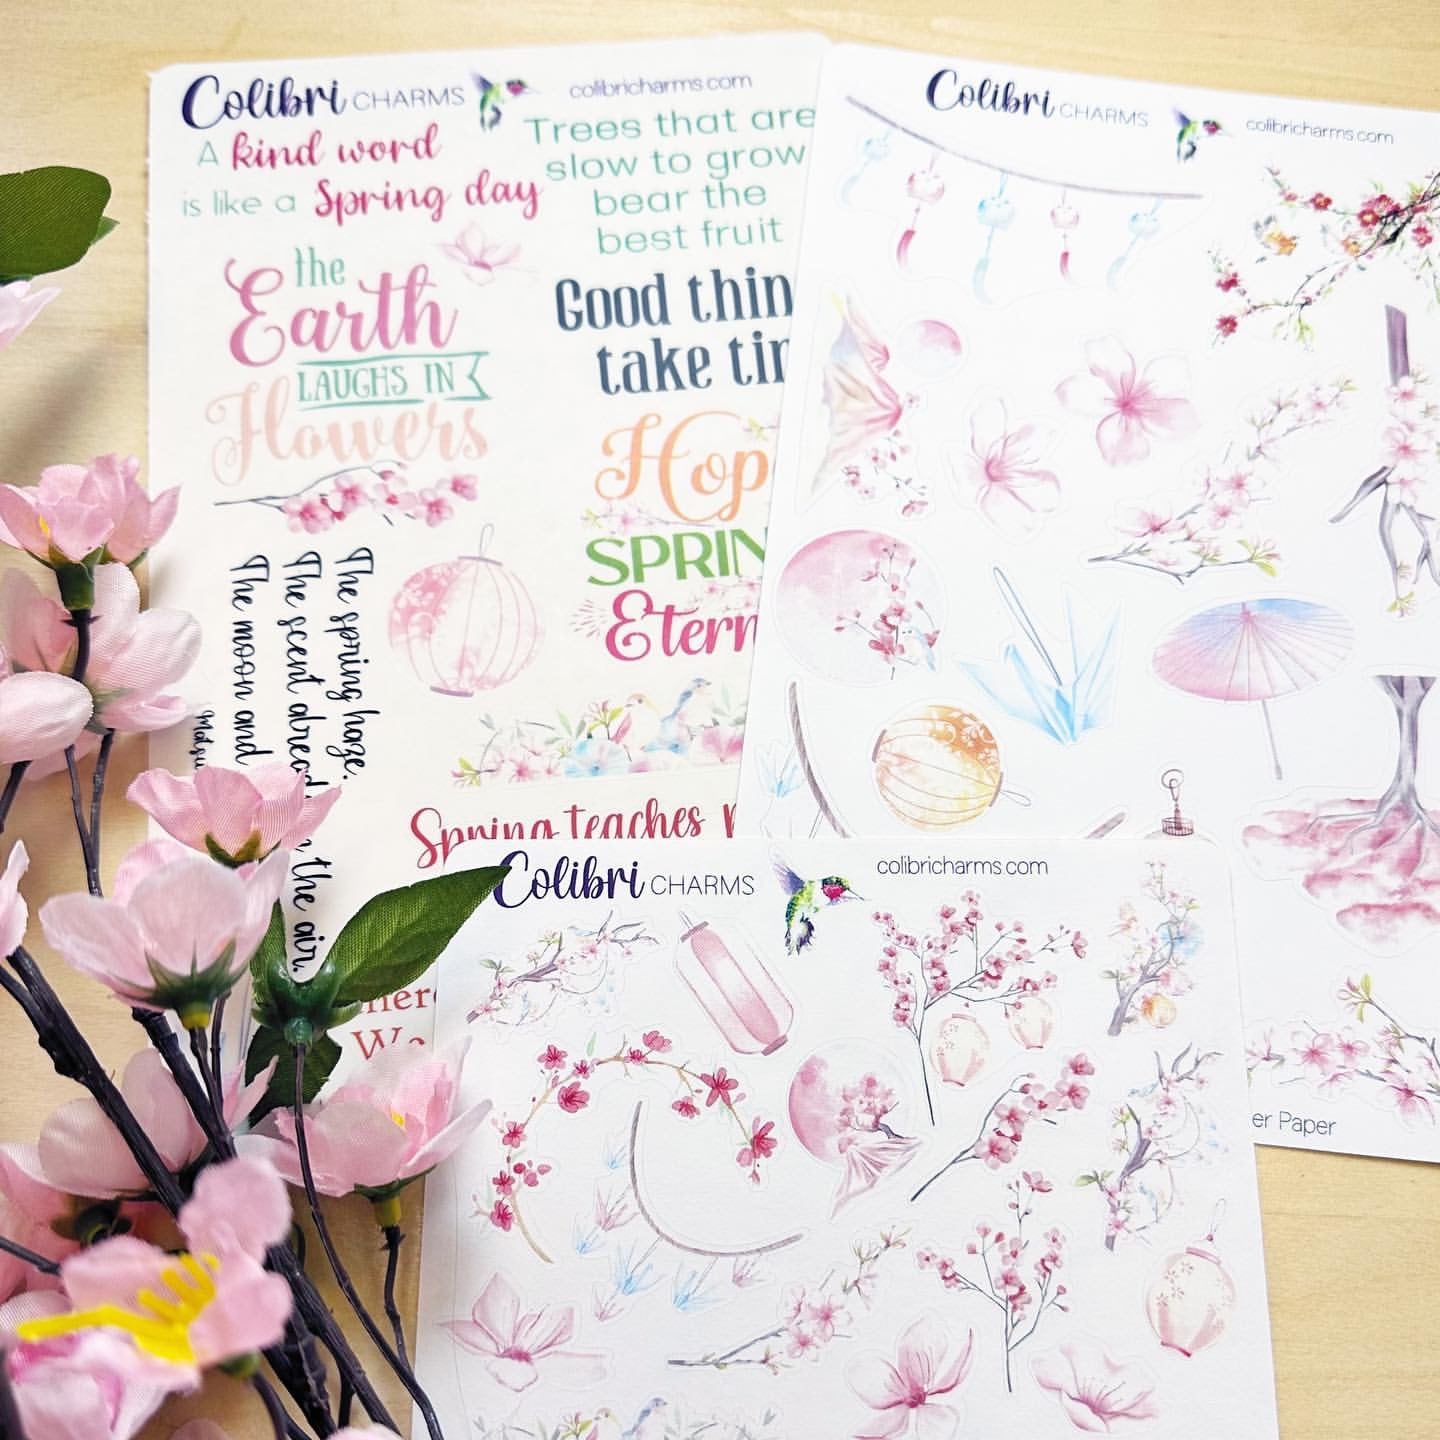 Colibri CHARMS
colibricharms.com
A kind word
is like a Spring day
Trees that are
slow to grow
bear the
best fruit
the
Earth
LAUGHS IN
Flowers
Good
take
SPRING
The spring haze.
The scent already in the air.
The moon and
Spring teaches
Colibri CHARMS
colibricharms.com
Paper
Colibri CHARMS
colibricharms.com